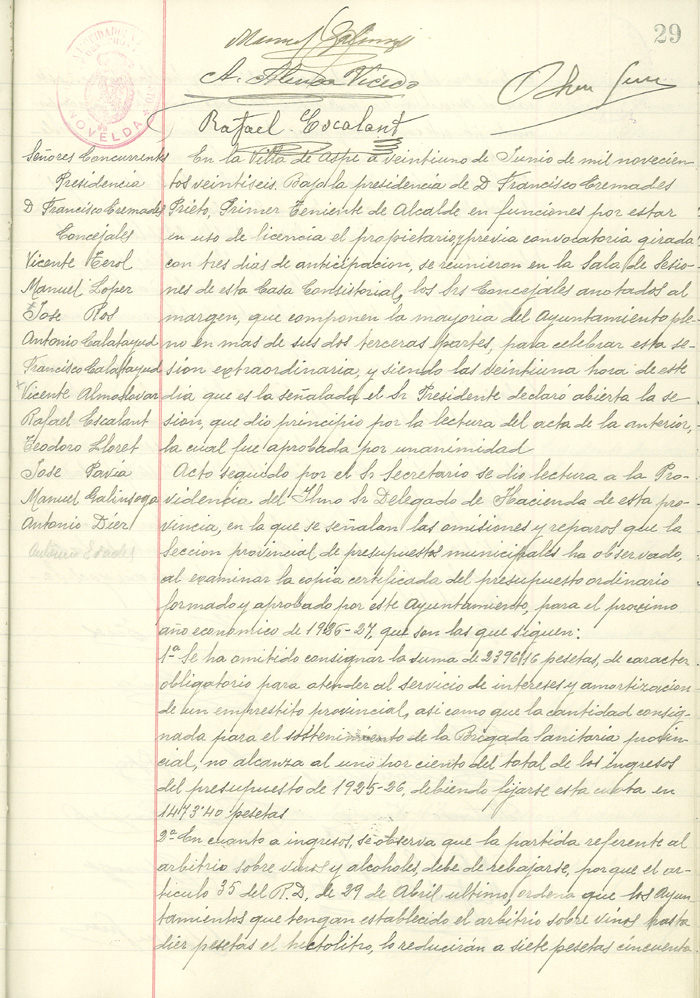 29
Manuel Galinsoga
A. Almodovar
Rafael Escalant
NOVELDA
Señores Concurrentes
Presidencia
D Francisco Cremades
Concejales
Vicente Terol
Manuel Loper
Jose Ros
Antonio Calatayud
Francisco Calatayud
Vicente Almodovar
Rafael Escalant
Teodoro Lloret
Jose Pavia
Manuel Galinsoga
Antonio Dier
En la Villa de Aspe a veintiuno de Junio de mil novecien-
tos veintiseis. Bajo la presidencia de D Francisco Cremades
Prieto, Primer Teniente de Alcalde en funciones por estar
en uso de licencia el propietario y previa convocatoria girada
con tres dias de anticipacion, se reunieron en la Sala de Sesio-
nes de esta Casa Consistorial, los Srs Concejales anotados al
margen, que componen la mayoria del Ayuntamiento ple-
no en mas de sus dos terceras partes, para celebrar esta se-
sion extraordinaria, y siendo las veintiuna hora de este
dia que es la señalada, el Sr Presidente declaró abierta la se-
sion, que dio principio por la lectura del acta de la anterior,
la cual fue aprobada por unanimidad
Acto seguido por el Sr Secretario se dio lectura a la Pro-
videncia del Ilmo Sr Delegado de Hacienda de esta pro-
vincia, en la que se señalan las omisiones y reparos que la
Seccion provincial de presupuestos municipales ha observado,
al examinar la copia certificada del presupuesto ordinario
formado y aprobado por este Ayuntamiento, para el proximo
año economico de 1926-27, que son las que siguen:
1ª Se ha omitido consignar la suma de 2396'16 pesetas, de caracter
obligatorio para atender al servicio de intereses y amortizacion
de un emprestito provincial, asi como que la cantidad consig-
nada para el sostenimiento de la Brigada Sanitaria provin-
cial, no alcanza al uno por ciento del total de los ingresos
del presupuesto de 1925-26, debiendo fijarse esta cuota en
1473'40 pesetas
2ª En cuanto a ingresos, se observa que la partida referente al
arbitrio sobre vinos y alcoholes, debe de rebajarse, porque el ar-
ticulo 35 del R.D. de 29 de Abril ultimo, ordena que los Ayun-
tamientos que tengan establecido el arbitrio sobre vinos hasta
dier pesetas el hectolitro, lo reducirán a siete pesetas cincuenta